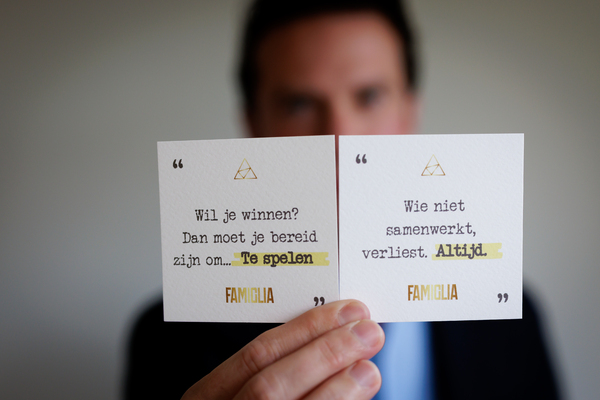 “
Wil je winnen?
Dan moet je bereid
zijn om... Te spelen
FAMIGLIA
”
“
Wie niet
samenwerkt,
verliest. Altijd.
FAMIGLIA
”